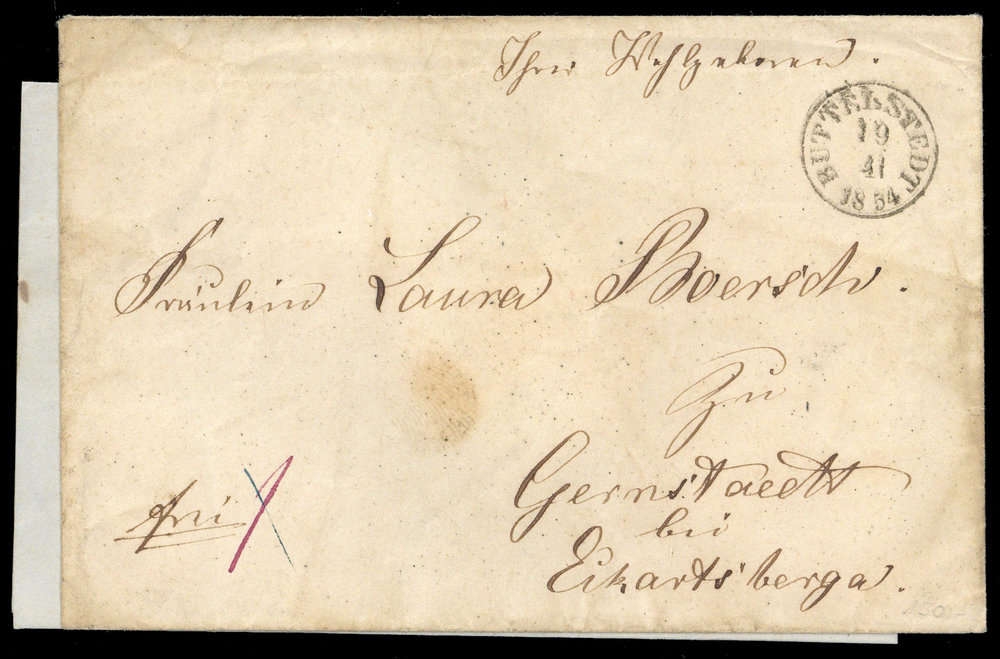 Ihro Wohlgeboren.
BUTTELSTEDT
19
11
1854
Fräulein Laura Boersch.
Zu
Gernstaedt
bei
Eckartsberga.
frei